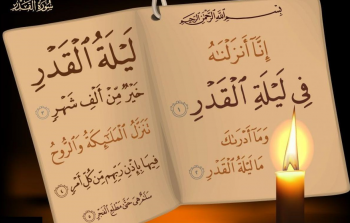 سُورَةُ الْقَدْرِ
بِسْمِ اللَّهِ الرَّحْمَٰنِ الرَّحِيمِ
إِنَّا أَنزَلْنَٰهُ
فِى لَيْلَةِ الْقَدْرِ ١
وَمَا أَدْرَىٰكَ
مَا لَيْلَةُ الْقَدْرِ ٢
لَيْلَةُ الْقَدْرِ
خَيْرٌ مِّنْ أَلْفِ شَهْرٍ ٣
تَنَزَّلُ الْمَلَٰٓئِكَةُ وَالرُّوحُ
فِيهَا بِإِذْنِ رَبِّهِم مِّن كُلِّ أَمْرٍ ٤
سَلَٰمٌ هِىَ حَتَّىٰ مَطْلَعِ الْفَجْرِ ٥